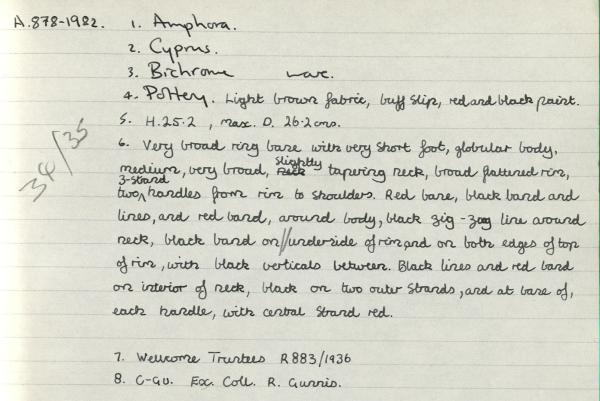 A.878-1982. 1. Amphora.
2. Cyprus.
3. Bichrome ware.
4. Pottery. Light brown fabric, buff slip, red and black paint.
5. H.25.2, max. D. 26.2cms.
6. Very broad ring base with very short foot, globular body,
medium, very broad, slightly tapering neck, broad flattened rim,
two 3-strand handles from rim to shoulders. Red base, black band and
lines, and red band, around body, black zig-zag line around
neck, black band on//underside of rim and on both edges of top
of rim, with black verticals between. Black lines and red band
on interior of neck, black on two outer strands, and at base of,
each handle, with central strand red.
34/35
7. Wellcome Trustees R883/1936
8. C-GU. Exc. Coll. R. Gunnis.